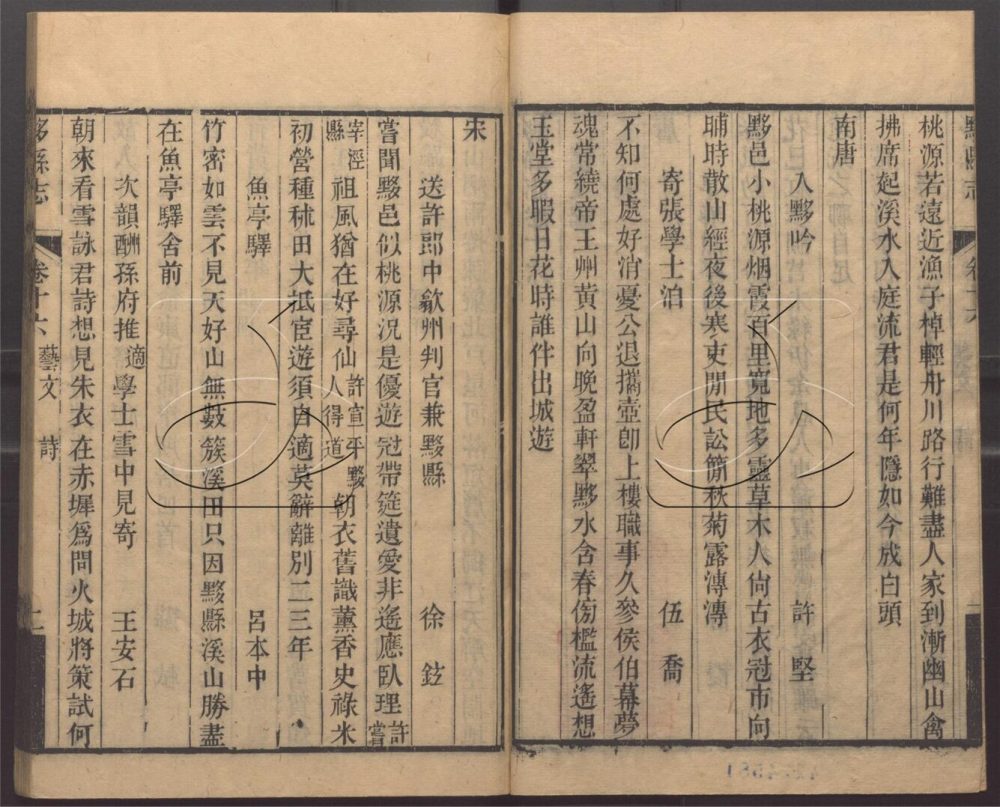 黟縣志
桃源若遠近漁子棹輕舟川路行難盡人家到漸幽山禽
拂席起溪水入庭流君是何年隱如今成白頭
南唐
入黟吟 許堅
黟邑小桃源烟霞百里寬地多靈草木人尙古衣冠市向
晡時散山經夜後寒吏閒民訟簡秋菊露漙漙
寄張學士洎 伍喬
不知何處好消憂公退攜壺卽上樓職事久參侯伯幕夢
魂常繞帝王州黃山向晚盈軒翠黟水含春傍檻流遙想
玉堂多暇日花時誰伴出城遊
宋
送許郎中歙州判官兼黟縣 徐鉉
嘗聞黟邑似桃源況是優遊冠帶筵遺愛非遙應臥理許嘗
宰涇縣祖風猶在好尋仙許宣平黟人得道朝衣舊識薰香史祿米
初營種秫田大抵宦遊須自適莫辭離別二三年
魚亭驛 呂本中
竹密如雲不見天好山無數簇溪田只因黟縣溪山勝盡
在魚亭驛舍前
次韻酬孫府推適學士雪中見寄 王安石
朝來看雪詠君詩想見朱衣在赤墀爲問火城將策試何
黟縣志 卷十六 藝文 詩 二